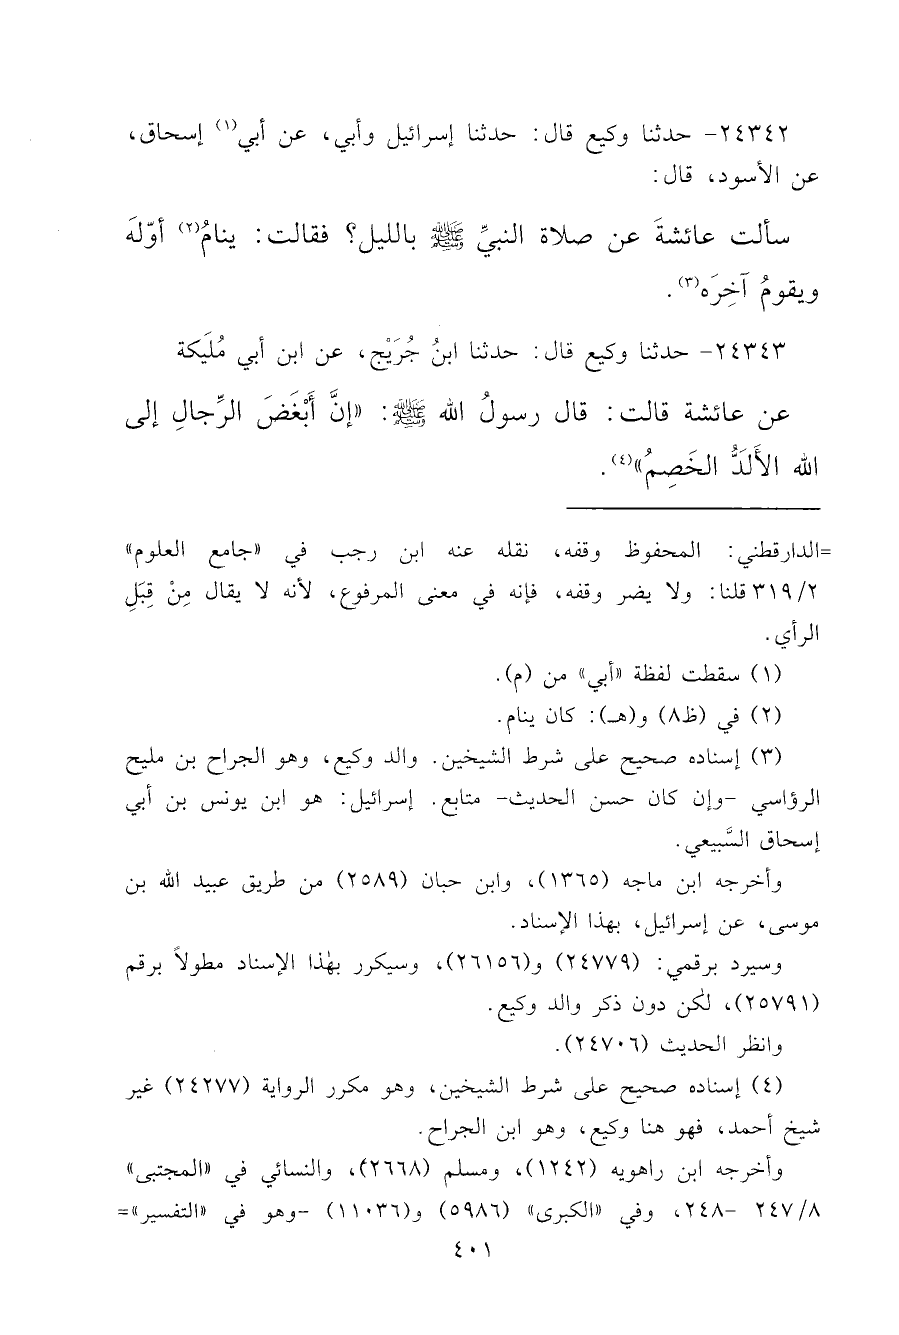 ٢٤٣٤٢- حدثنا وكيع قال: حدثنا إسرائيل وأبي، عن أبي(١) إسحاق،
عن الأسود، قال:
سألت عائشةَ عن صلاة النبيِّ ﷺ بالليل؟ فقالت: ينامُ(٢) أوّلهَ
ويقومُ آخِرَه(٣).
٢٤٣٤٣- حدثنا وكيع قال: حدثنا ابنُ جُرَيْج، عن ابن أبي مُلَيكة
عن عائشة قالت: قال رسولُ الله ﷺ: «إنَّ أَبْغَضَ الرِّجالِ إلى
الله الأَلَدُّ الخَصِمُ»(٤).
=الدارقطني: المحفوظ وقفه، نقله عنه ابن رجب في «جامع العلوم»
٣١٩/٢ قلنا: ولا يضر وقفه، فإنه في معنى المرفوع، لأنه لا يقال مِنْ قِبَلِ
الرأي.
(١) سقطت لفظة «أبي» من (م).
(٢) في (ظ٨) و(هـ): كان ينام.
(٣) إسناده صحيح على شرط الشيخين. والد وكيع، وهو الجراح بن مليح
الرؤاسي -وإن كان حسن الحديث- متابع. إسرائيل: هو ابن يونس بن أبي
إسحاق السَّبيعي.
وأخرجه ابن ماجه (١٣٦٥)، وابن حبان (٢٥٨٩) من طريق عبيد الله بن
موسى، عن إسرائيل، بهذا الإسناد.
وسيرد برقمي: (٢٤٧٧٩) و(٢٦١٥٦)، وسيكرر بهٰذا الإسناد مطولاً برقم
(٢٥٧٩١)، لٰكن دون ذكر والد وكيع.
وانظر الحديث (٢٤٧٠٦).
(٤) إسناده صحيح على شرط الشيخين، وهو مكرر الرواية (٢٤٢٧٧) غير
شيخ أحمد، فهو هنا وكيع، وهو ابن الجراح.
وأخرجه ابن راهويه (١٢٤٢)، ومسلم (٢٦٦٨)، والنسائي في «المجتبى»
٢٤٧/٨ -٢٤٨، وفي «الكبرى» (٥٩٨٦) و(١١٠٣٦) -وهو في «التفسير»=
٤٠١